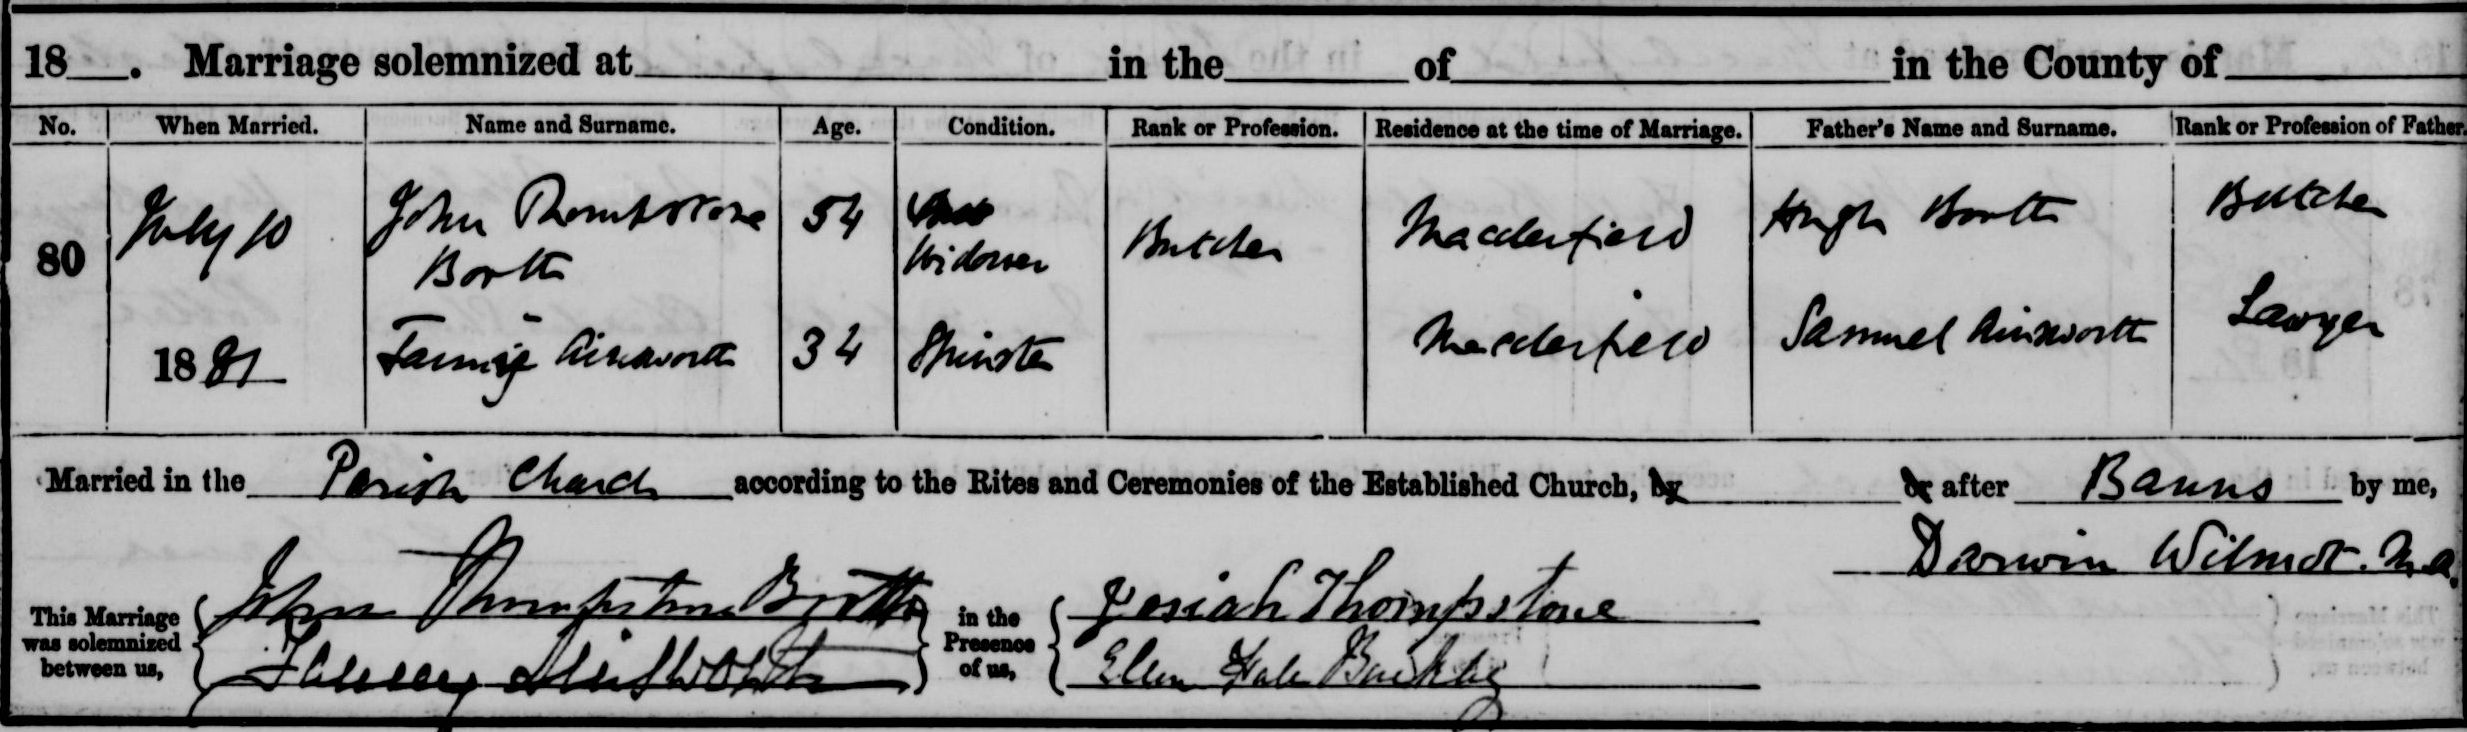 18 . Marriage solemnized at in the of in the County of
No. When Married. Name and Surname. Age. Condition. Rank or Profession. Residence at the time of Marriage. Father's Name and Surname. Rank or Profession of Father.
80 July 10 1881
John Thompstone Booth 54 Widower Butcher Macclesfield Hugh Booth Butcher
Fanny Ainsworth 34 Spinster Macclesfield Samuel Ainsworth Lawyer
Married in the Parish Church according to the Rites and Ceremonies of the Established Church, by or after Banns by me,
Darwin Wilmot. M.A.
This Marriage was solemnized between us,
John Thompstone Booth
Fanny Ainsworth
in the Presence of us,
Josiah Thompstone
Ellen